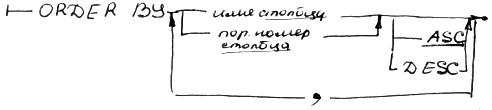 ORDER BY имя столбца
пор. номер
столбца
ASC
DESC
,